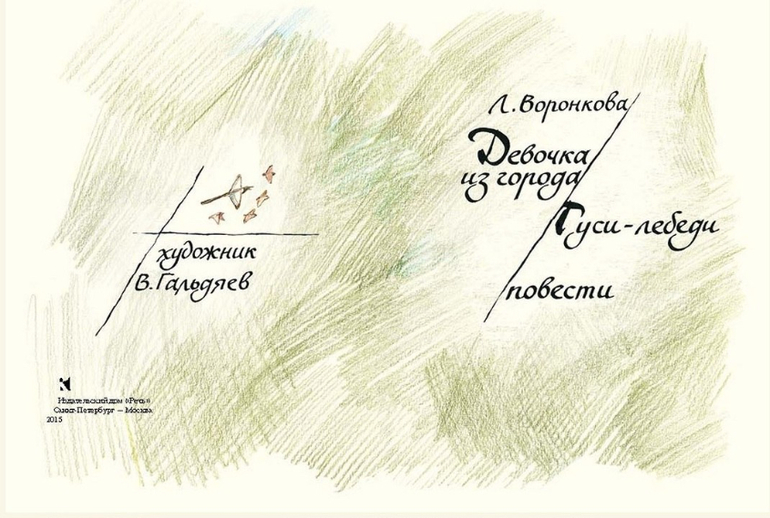 художник
В.Гальдяев
Издательский дом «Речь»
Санкт-Петербург — Москва
2015
Л.Воронкова
Девочка
из города
Гуси-лебеди
повести